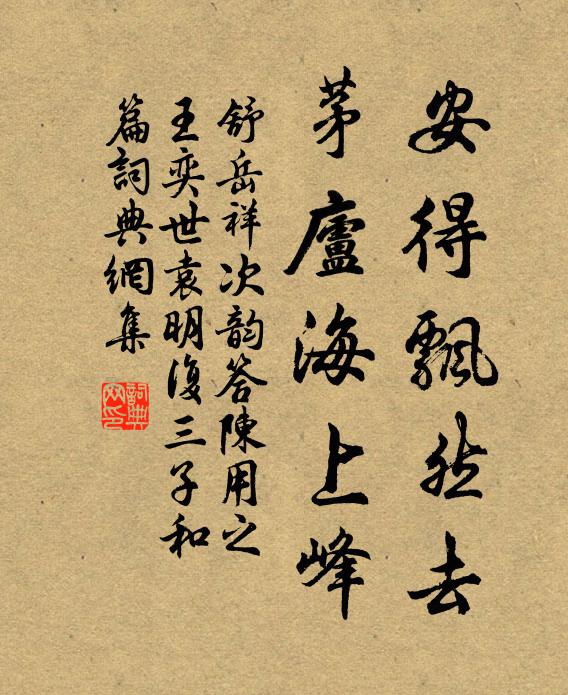 安得飄然去
茅廬海上峰
舒岳祥次韵答陳用之
王奕世袁明復三子和
篇詞典網集
詞典
网印